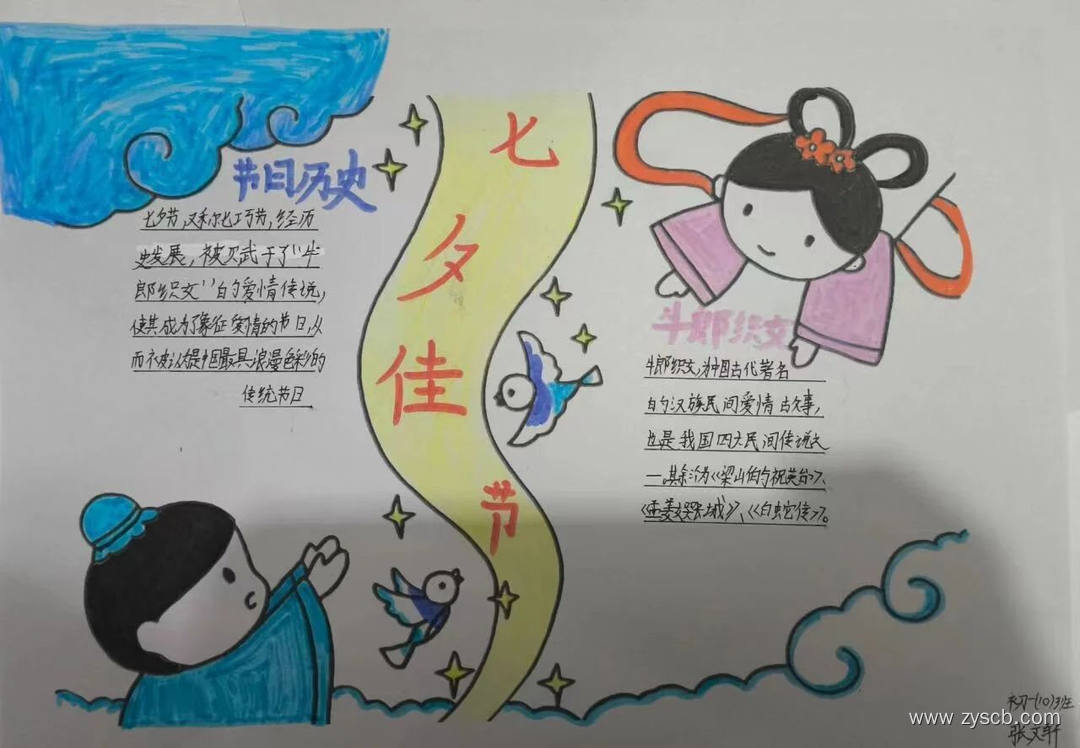 七夕佳节
节日历史
七夕节,又称七巧节,经历
史发展,被赋予了“牛
郎织女”的爱情传说,
使其成为了象征爱情的节日,从
而被认为是中国最具浪漫色彩的
传统节日
牛郎织女
牛郎织女,为中国古代著名
的汉族民间爱情故事,
也是我国四大民间传说之
一。其余为《梁山伯与祝英台》、
《孟姜女哭长城》、《白蛇传》。
初一(10)班
张文轩
www.zyscb.com